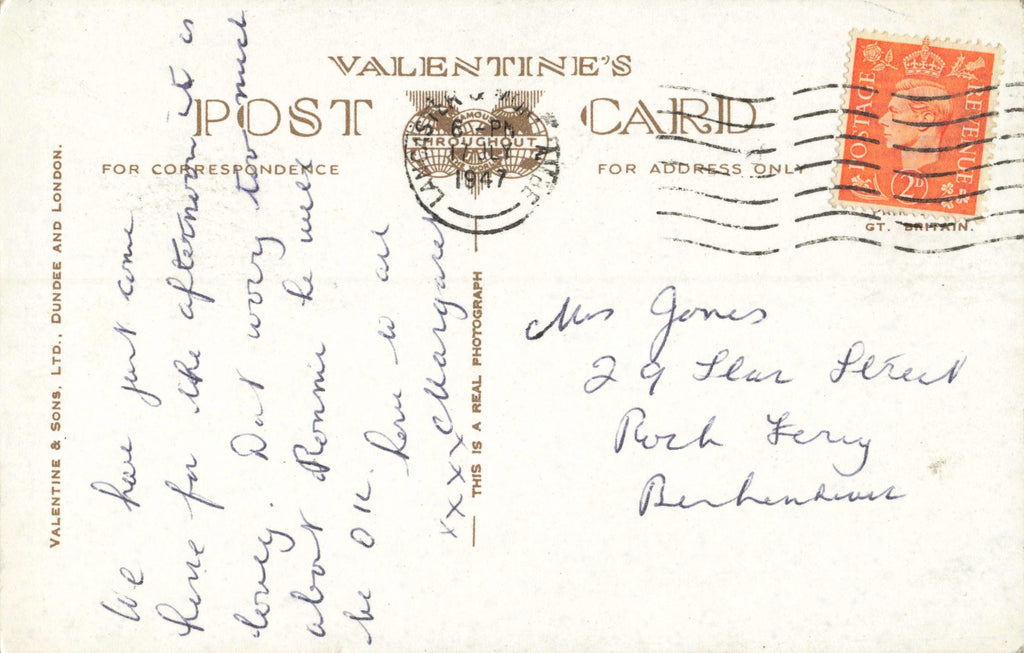 VALENTINE'S
POST CARD
FOR CORRESPONDENCE
FOR ADDRESS ONLY
VALENTINE & SONS, LTD., DUNDEE AND LONDON.
THIS IS A REAL PHOTOGRAPH
FAMOUS
THROUGHOUT
6 PM
1947
POSTAGE
REVENUE
2D
GT. BRITAIN.
We have just come
here for the afternoon it is
lovely. Dont worry too much
about Ronnie he will
be OK.
xxxx Margaret
Mrs Jones
29 Star Street
Rock Ferry
Berkenhead